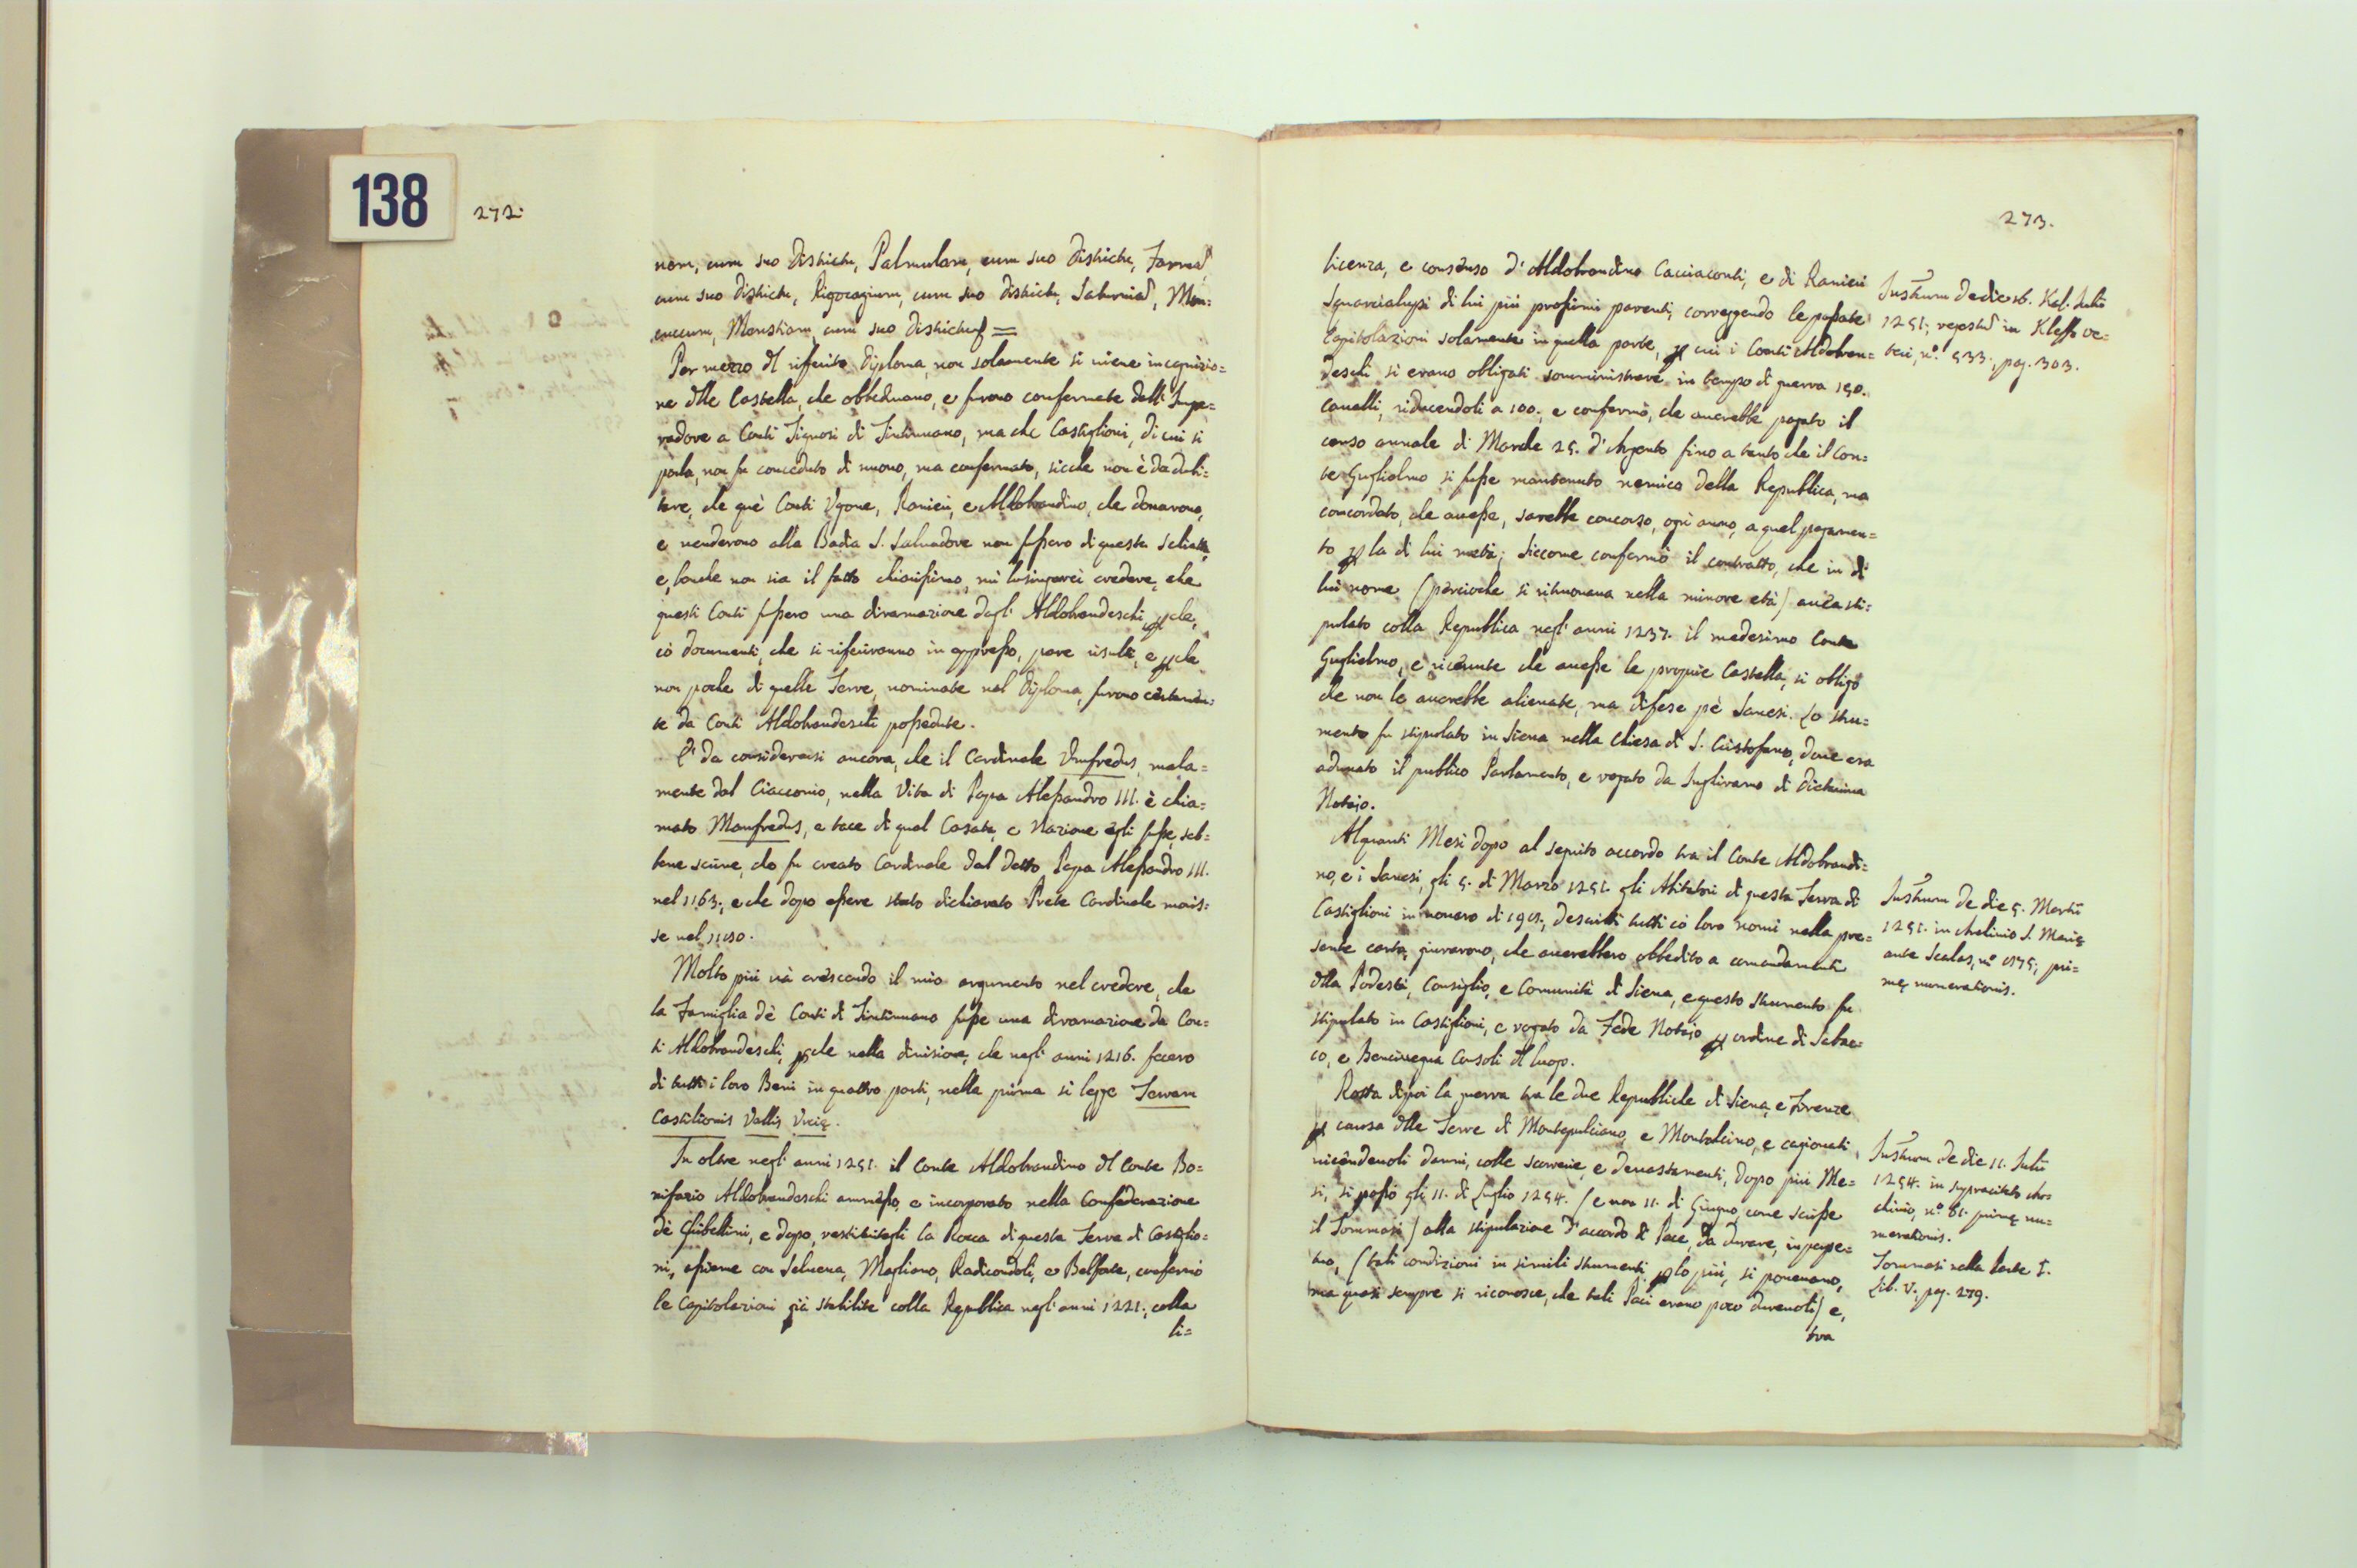 138
272.
nom, cum suo Districtu, Palmulam, cum suo Districtu,
cum suo Districtu, Rigocaginum, cum suo Districtu, Saturniad, Mon=
cuccum, Monstiam cum suo Districtu =
Per mezzo dl riferito Diploma, non solamente si viene in cognizio=
ne dlle Castella, che obbedivano, e furono confermate dall' Impe=
radore a Conti Signori di Tintinnano, ma che Castiglioni, di cui si
parla, non fu conceduto di nuovo, ma confermato, sicche non è da dubi=
tare, che què Conti Ugone, Ranieri, e Aldobrandino, che donarono,
e venderono alla Badia S. Salvadore non fussero di questa schiatta,
e, benche non sia il fatto chiarissimo, mi lusingarei credere, che
questi Conti fussero una diramazione degli Aldobrandeschi, pche,
cò documenti, che si riferiranno in appresso, pare risulti, e pche
non poche di quelle Terre, nominate nel Diploma, furono certamen=
te da Conti Aldobrandeschi possedute.
E' da considerarsi ancora, che il Cardinale Umfredus, mala=
mente dal Ciacconio, nella Vita di Papa Alessandro III. è chia=
mato Manfredus, e tace di qual Casata, e Nazione egli fusse, seb=
bene scrive, che fu creato Cardinale dal detto Papa Alessandro III.
nel 1163., e che dopo essere stato dichiarato Prete Cardinale moris=
se nel
Molto più và crescendo il mio argumento nel credere, che
la Famiglia dè Conti di Tintinnano fusse una diramazione da Con=
ti Aldobrandeschi, pche nella divisione, che negli anni 1216. fecero
di tutti i loro Beni in quattro parti, nella prima si legge Terram
Castilionis Vallis Urcię.
In oltre negli anni 1251. il Conte Aldobrandino dl Conte Bo=
nifazio Aldobrandeschi ammesso, e incorporato nella Confederazione
dè Ghibellini, e dopo, restituitagli la Rocca di questa Terra di Castiglio=
ni, assieme con Selvena, Magliano, Radicondoli, e Belforte, confermò
le Capitolazioni già stabilite colla Republica negli anni 1221., colla
li=
273.
licenza, e consenso d'Aldobrandino Cacciaconti, e di Ranieri
Squarcialupi di lui più prossimi parenti, correggendo le passate
Capitolazioni solamente in quella parte, p cui i Conti Aldobran=
deschi si erano obligati somministrare in tempo di guerra 150.
Cavalli, riducendoli a 100., e confermò, che averebbe pagato il
censo annale di Marche 25. d'Argento fino a tanto che il Con=
te Guglielmo si fusse mantenuto nemico della Republica, ma
concordato, che avesse, sarebbe concorso, ogni anno, a quel pagamen=
to p la di lui metà; siccome confermò il contratto, che in di
lui nome (percioche si ritrovava nella minore età) avea sti=
pulato colla Republica negli anni 1237. il medesimo Conte
Guglielmo, e ricevute che avesse le proprie Castella, si obligò
che non le averebbe alienate, ma difese pè Sanesi. Lo stru=
mento fu stipolato in Siena nella Chiesa di S. Cristofano, dove era
adunato il publico Parlamento, e rogato da Inghiramo di
Notajo.
Alquanti Mesi dopo al seguito accordo tra il Conte Aldobrandi=
no, e i Sanesi, gli 5. di Marzo 1251. gli Abitatori di questa Terra di
Castiglioni in novero di descritti tutti cò loro nomi nella pre=
sente carta, giurarono, che averebbero obbedito a comandamenti
dlla Podestà, Consiglio, e Comunità di Siena, e questo strumento fu
stipulato in Castiglioni, e rogato da Fede Notajo p ordine di
co, e Bencivegna Consoli dl luogo.
Rotta dipoi la guerra tra le due Republiche di Siena, e Firenze
p causa dlle Terre di Montepulciano, e Montalcino, e cagionati,
vicendevoli danni, colle scorrerie, e devastamenti, dopo più Me=
si, si passò gli 11. di Luglio 1254. (e non 11. di Giugno, come scrisse
il Tommasi) alla stipulazione d'accordo di Pace, da durare, in perpe=
tuo, (tali condizioni in simili strumenti, p lo più, si ponevano,
ma quasi sempre si riconosce, che tali Paci erano poco durevoli) e,
tra
Instrum de die 16. Kal. Julii
1251., regestud in Kleffo ve=
teri, n.º 533., pag. 303.
Instrum de die 5. Martii
1251. in Archivio S. Marię
ante Scalas, nº pri=
mę numerationis.
Instrum de die 11. Julii
1254. in supracitato Ar=
chivio, nº 61. primę nu=
merationis.
Tommasi nella Parte I.
Lib. V., pag. 279.